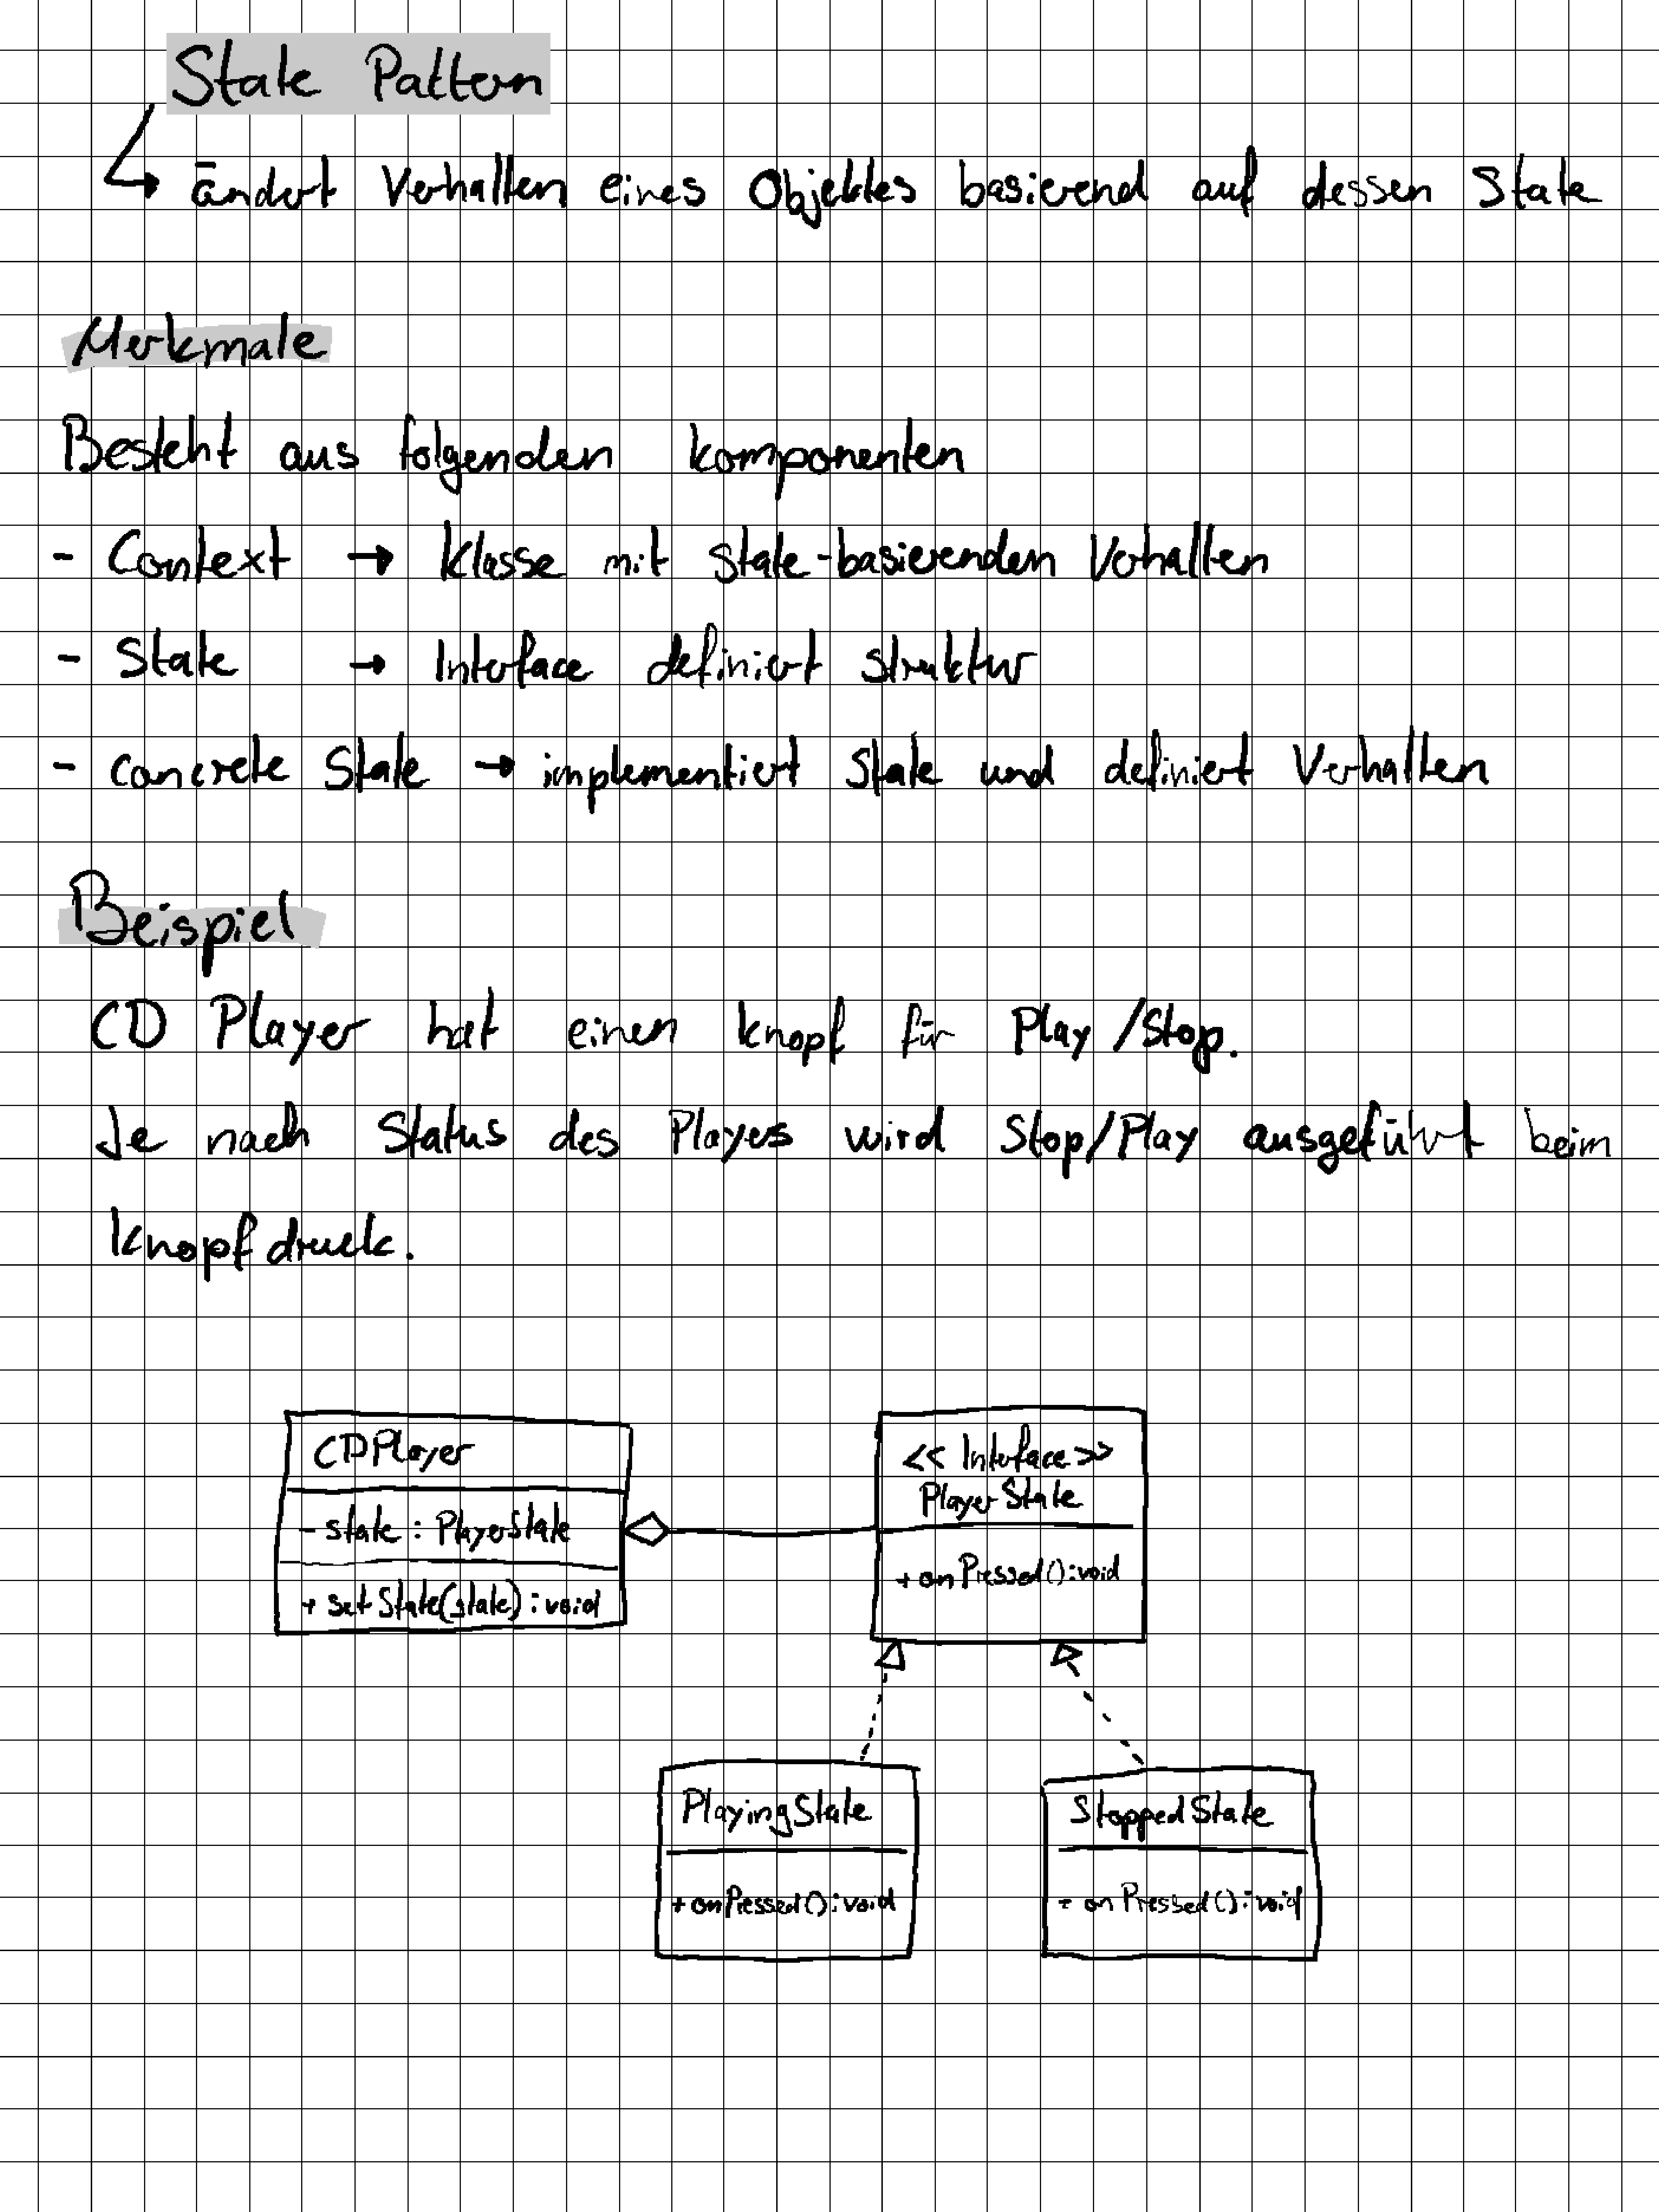 State Pattern
↳ ändert Verhalten eines Objektes basierend auf dessen State
Merkmale
Besteht aus folgenden Komponenten
- Context → Klasse mit State-basierenden Verhalten
- State → Interface definiert Struktur
- concrete State → implementiert State und definiert Verhalten
Beispiel
CD Player hat einen Knopf für Play/Stop.
Je nach Status des Players wird Stop/Play ausgeführt beim
Knopfdruck.
CDPlayer
- state : PlayerState
+ setState(state) : void
<< Interface >>
PlayerState
+ onPressed() : void
PlayingState
+ onPressed() : void
StoppedState
+ onPressed() : void